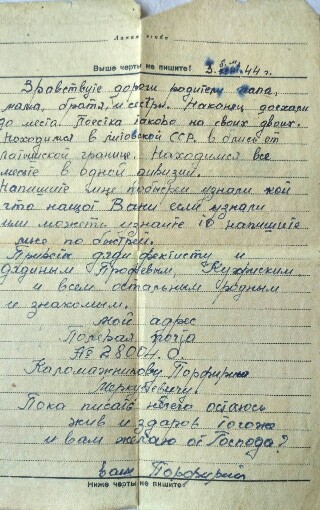 Линия сгиба
Выше черты не пишите!
44 г.
Здравствуйте дороги родители папа,
мама, братя, и сестры. Наконец доехали
до места на своих двоих.
Находимся в литовской ССР. в близ от
латвийской границе. Находимся все
месте в одной дивизии.
Напишите мне побыстрей узнали кой
что нащот Вани если узнали
или можеть узнаите то напишите
мне по быстрей.
Привет дяди феоктисту и
дядиным
и всем остальным родным
и знакомым.
мой адрес
Полевая почта
№ 28004.
Порфирию
Меркуревичу.
Пока писать нечего остаюсь
жив и здаров тогоже
и вам желаю от Господа?
ваш Порфирий
Ниже черты не пишите!